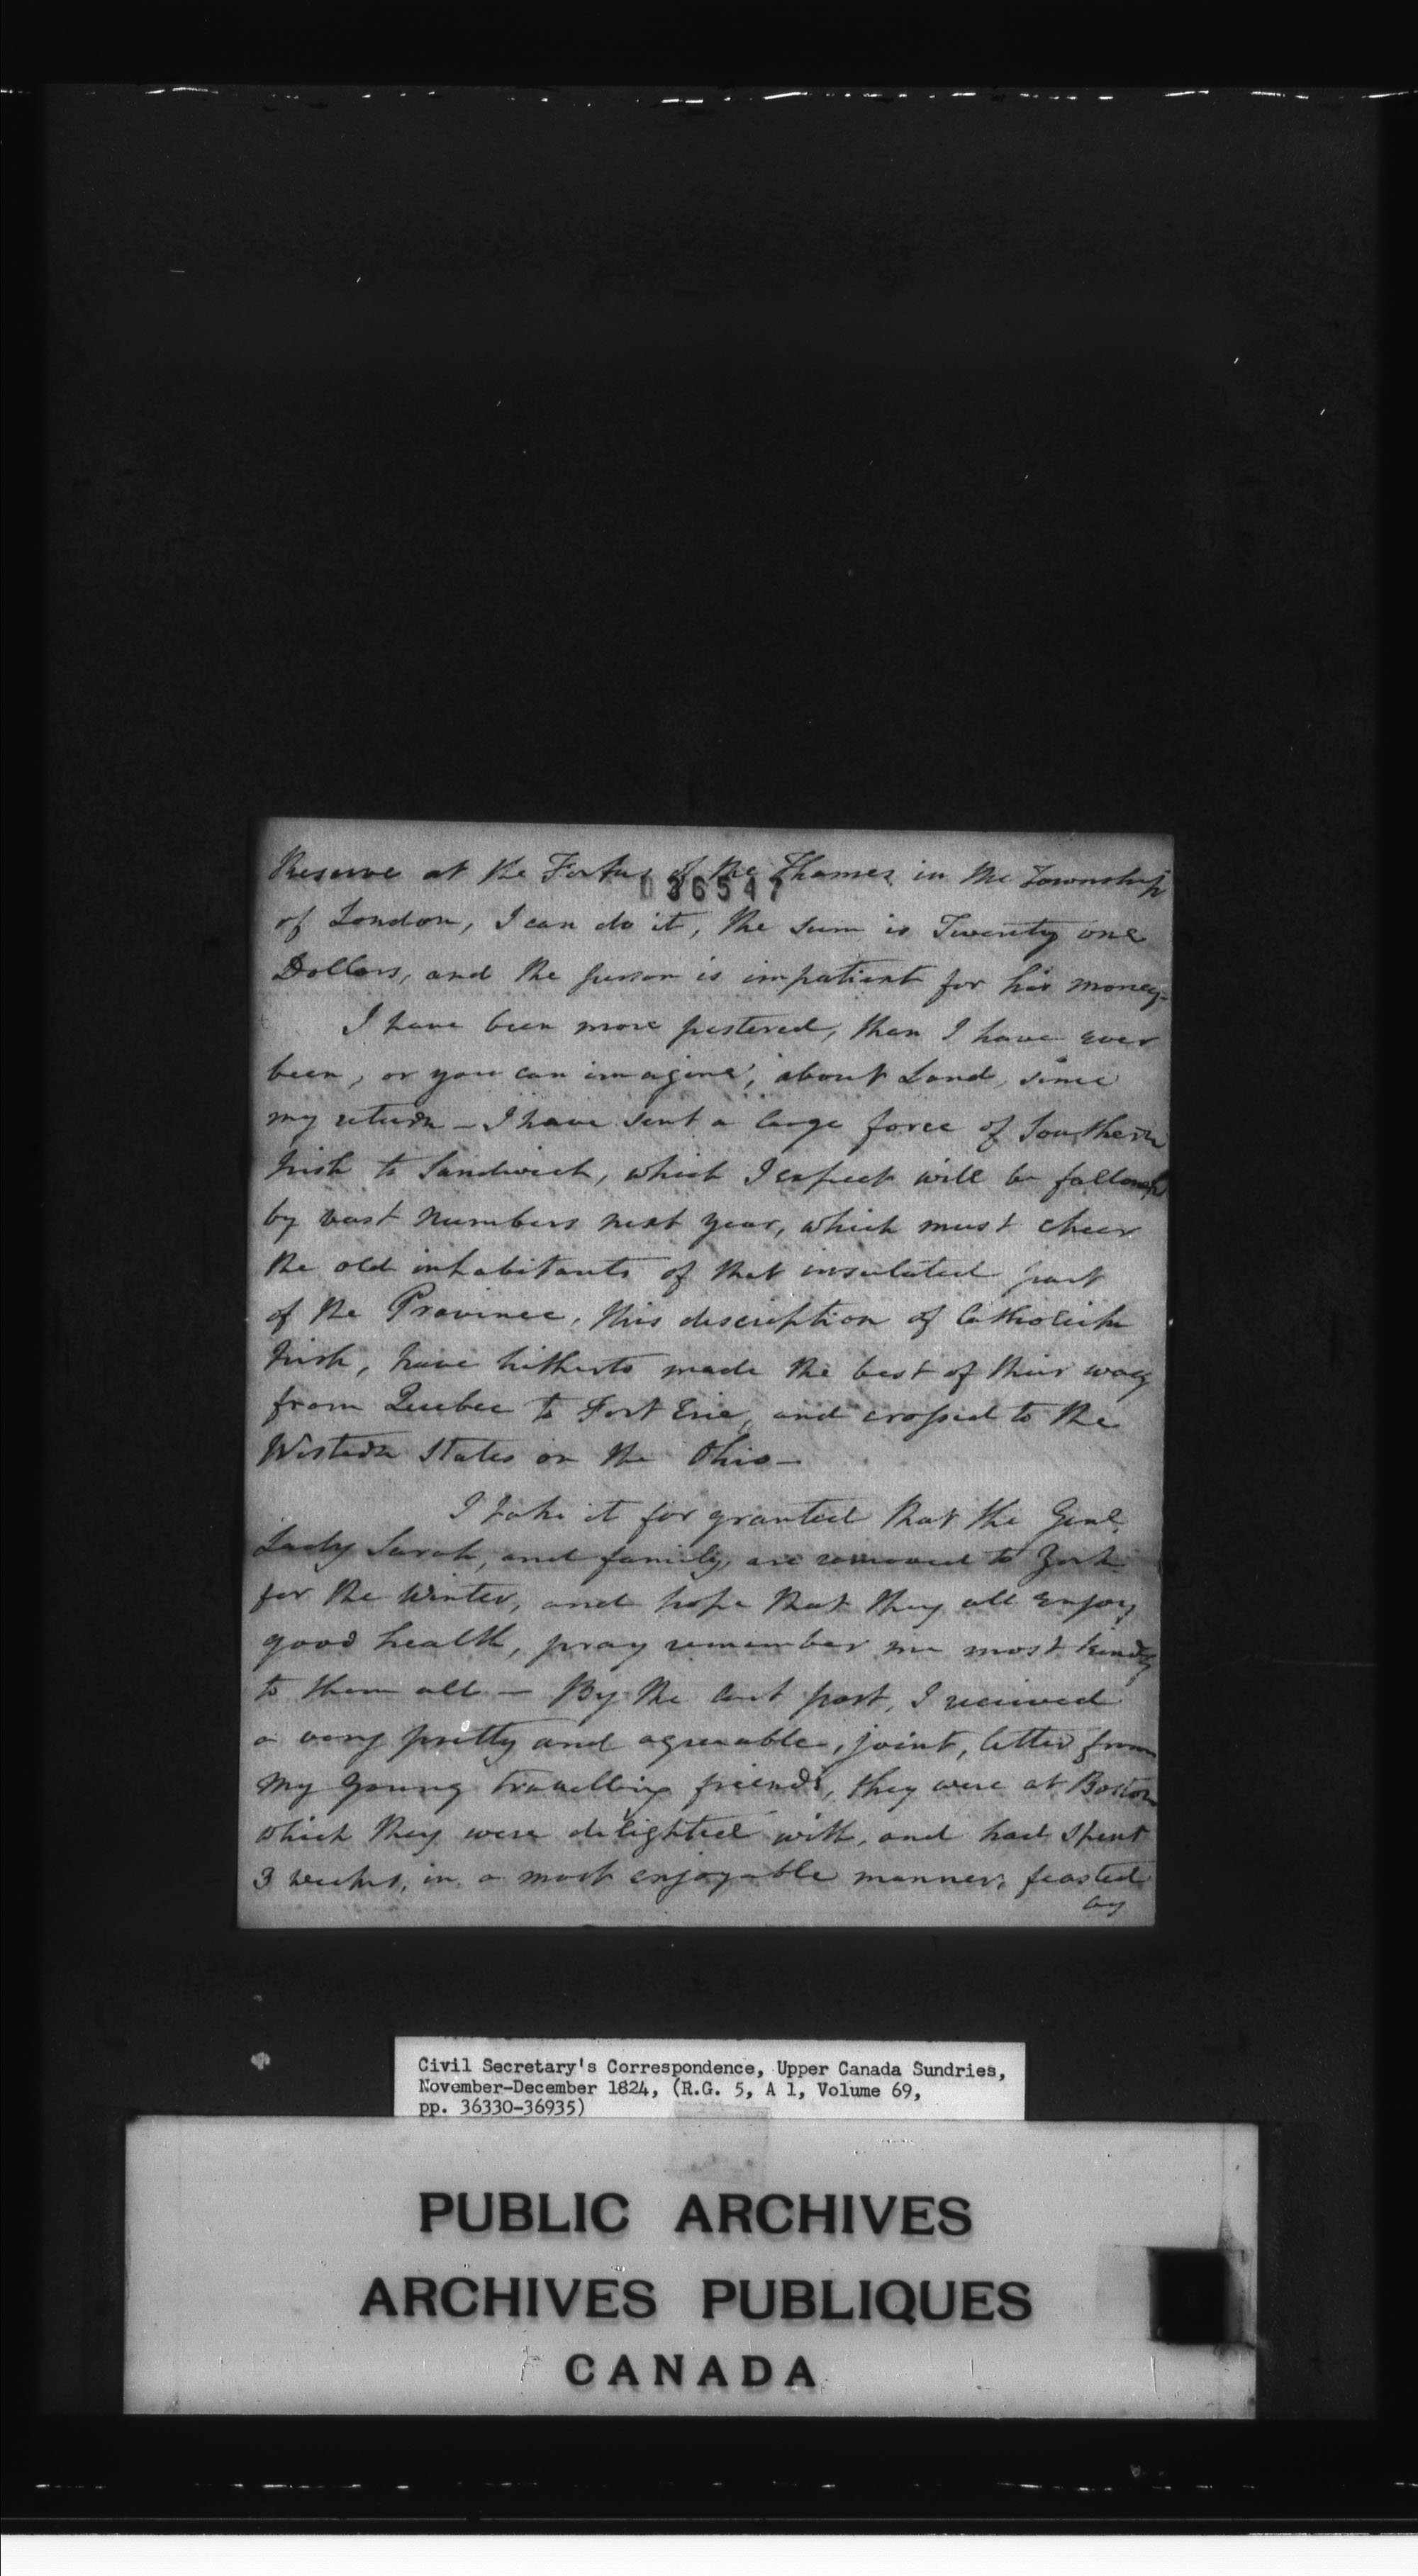 Reserve at the Forks of the Thames in the Township
036547
of London, I can do it, the sum is Twenty one
Dollars, and the person is impatient for his money-
I have been more pestered, then I have ever
been, or you can imagine, about Land, since
my return - I have sent a large force of Southern
Irish to Sandwich, which I expect will be followed
by vast numbers next year, which must cheer
the old inhabitants of that insulated part
of the Province, this description of Catholick
Irish, have hitherto made the best of their way
from Quebec to Fort Erie, and crossed to the
Western States on the Ohio-
I take it for granted that the Genl.
Lady Sarah, and family, are removed to York
for the Winter, and hope that they all enjoy
good health, pray remember me most kindly
to them all - By the last post, I received
a very pretty and agreeable, joint, letter from
my young travelling friends, they were at Boston
which they were delighted with, and had spent
3 weeks, in a most enjoyable manner, feasted
by
Civil Secretary's Correspondence, Upper Canada Sundries,
November-December 1824, (R.G. 5, A 1, Volume 69,
pp. 36330-36935)
PUBLIC ARCHIVES
ARCHIVES PUBLIQUES
CANADA